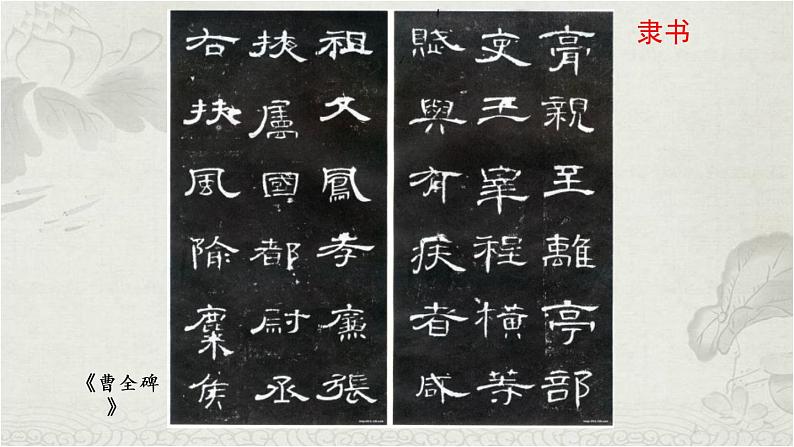 隶书
膏親至離亭部
吏王宰程橫等
賦與有疾者咸
祖父鳳孝廉張
掖屬國都尉丞
右扶風隃麋侯
《曹全碑
》